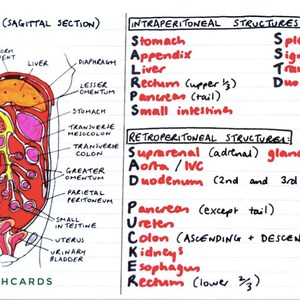 (SAGITTAL SECTION)
LIVER
DIAPHRAGM
LESSER
OMENTUM
STOMACH
TRANSVERSE
MESOCOLON
TRANSVERSE
COLON
GREATER
OMENTUM
PARIETAL
PERITONEUM
SMALL
INTESTINE
UTERUS
URINARY
BLADDER
HCARDS
INTRAPERITONEAL STRUCTURES
Stomach
Appendix
Liver
Rectum (upper 1/3)
Pancreas (tail)
Small intestine
Sple
Sig
Tra
Duo
RETROPERITONEAL STRUCTURES:
Suprarenal (adrenal) gland
Aorta / IVC
Duodenum (2nd and 3rd
Pancreas (except tail)
Ureter
Colon (ASCENDING + DESCEN
Kidneys
Esophagus
Rectum (lower 2/3)